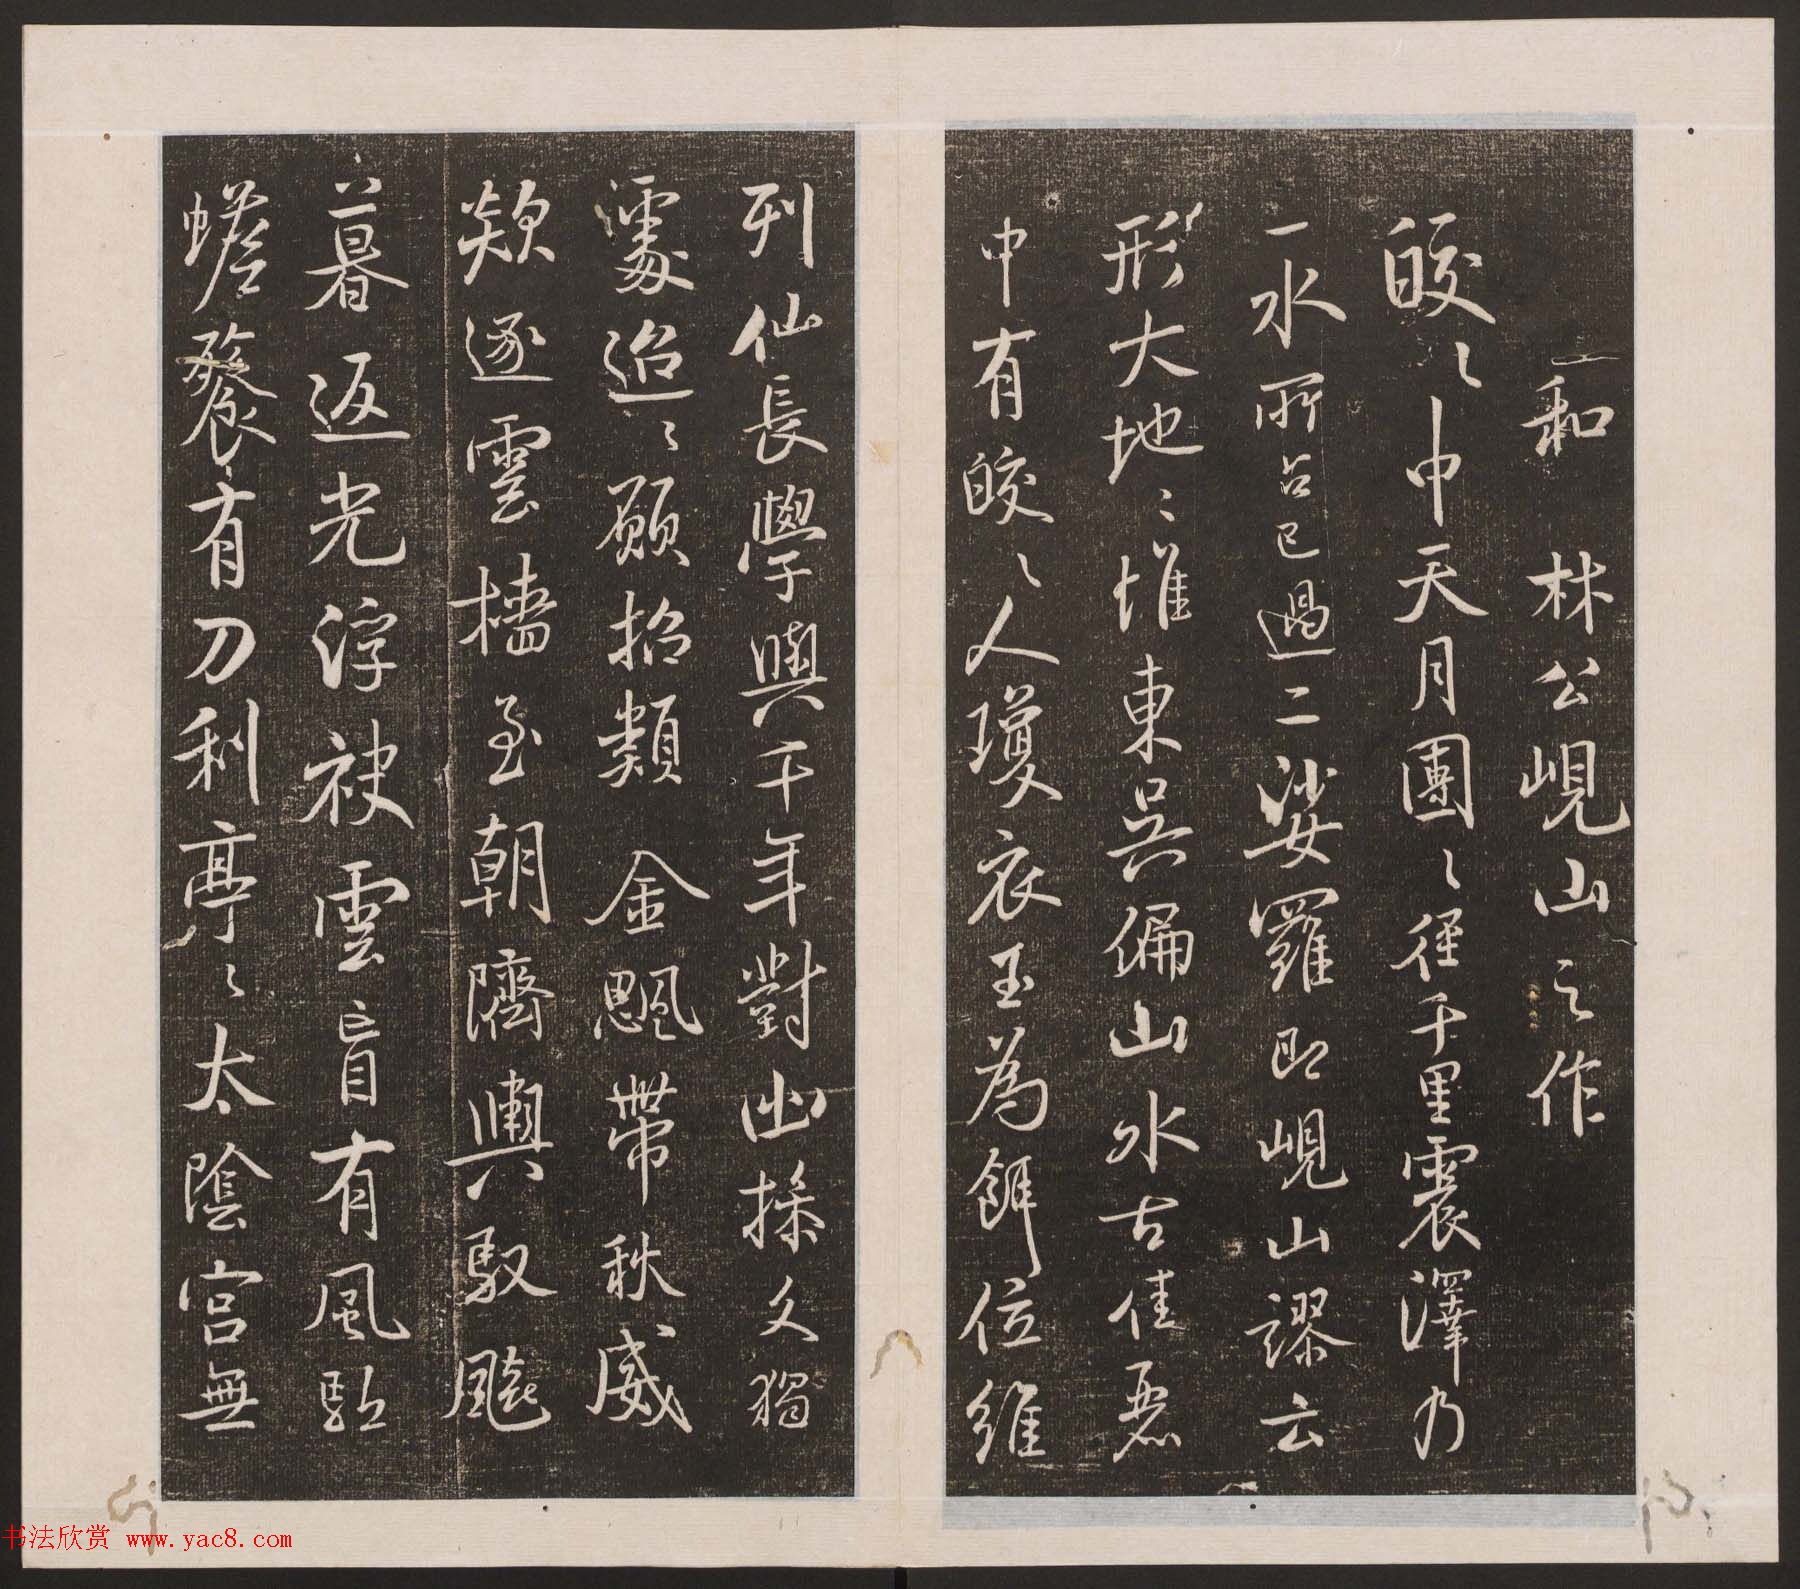 和林公峴山之作
皎〻中天月團〻徑千里震澤乃
一水所占已過二娑羅即峴山謬云
形大地〻惟東吳偏山水古佳麗
中有皎〻人瓊衣玉為餌位維
列仙長學與千年對幽操久獨
處迢〻願招類金飔帶秋威
欻逐雲檣至朝隮輿馭飈
暮返光浮袂雲盲有風驅
蟾餮有刀利亭〻太陰宮無
书法欣赏 www.yac8.com